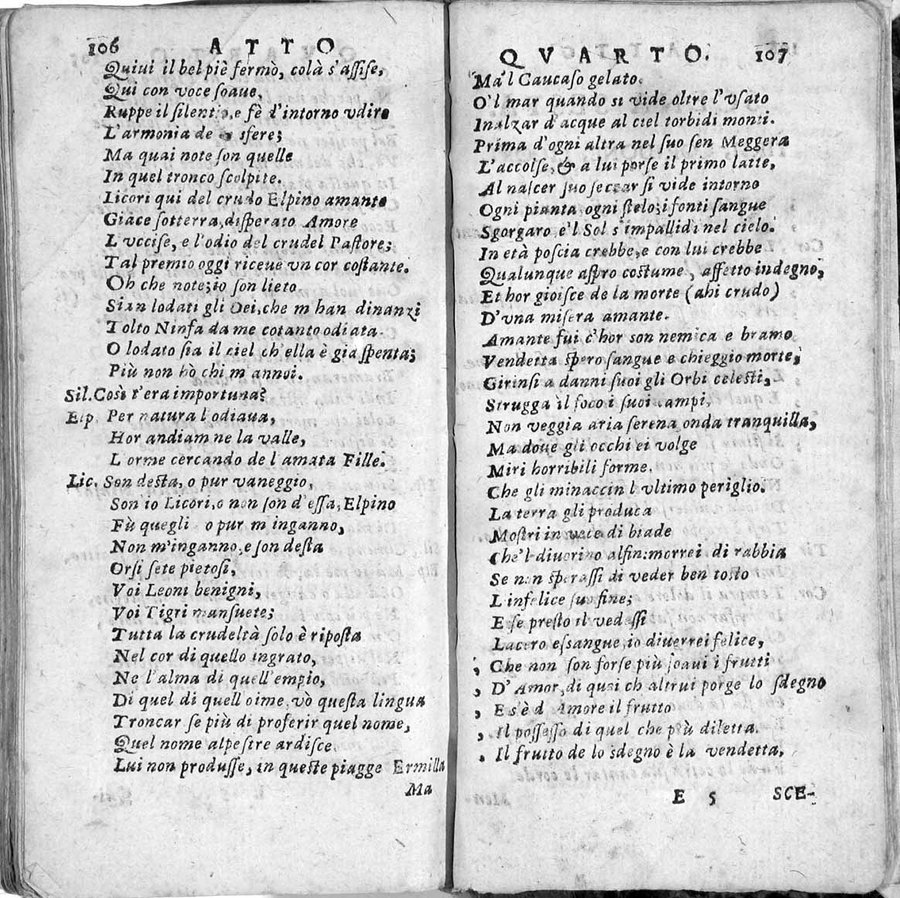 106 ATTO
Quiui il bel piè fermò, colà s'assise,
Qui con voce soaue,
Ruppe il silentio, e fè d'intorno vdire
L'armonia de sfere;
Ma quai note son quelle
In quel tronco scolpite.
Licori qui del crudo Elpino amante
Giace sotterra, disperato Amore
L'vccise, e l'odio del crudel Pastore;
Tal premio oggi riceue vn cor costante.
Oh che note; io son lieto
Sian lodati gli Dei, che m'han dinanzi
Tolto Ninfa da me cotanto odiata.
O lodato sia il ciel ch'ella è gia spenta;
Più non hò chi m'annoi.
Sil. Così t'era importuna?
Elp. Per natura l'odiaua,
Hor andiam ne la valle,
L'orme cercando de l'amata Fille.
Lic. Son desta, o pur vaneggio,
Son io Licori, o non son d'essa, Elpino
Fù quegli o pur m'inganno,
Non m'inganno, e son desta
Orsi sete pietosi,
Voi Leoni benigni,
Voi Tigri mansuete;
Tutta la crudeltà solo è riposta
Nel cor di quello ingrato,
Ne l'alma di quell'empio,
Di quel di quell oime, vò questa lingua
Troncar se più di proferir quel nome,
Quel nome alpestre ardisce
Lui non produsse, in queste piagge Ermilla
Ma
QVARTO. 107
Ma'l Caucaso gelato.
O'l mar quando si vide oltre l'vsato
Inalzar d'acque al ciel torbidi monti.
Prima d'ogni altra nel suo sen Meggera
L'accolse, & a lui porse il primo latte,
Al nascer suo seccar si vide intorno
Ogni pianta ogni stelo; i fonti sangue
Sgorgaro, e'l Sol s'impallidì nel cielo.
In età poscia crebbe, e con lui crebbe
Qualunque aspro costume, affetto indegno,
Et hor gioisce de la morte (ahi crudo)
D'vna misera amante.
Amante fui c'hor son nemica e bramo
Vendetta spero sangue e chieggio morte;
Girinsi a danni suoi gli Orbi celesti,
Strugga il foco i suoi campi,
Non veggia aria serena onda tranquilla,
Ma doue gli occhi ei volge
Miri horribili forme.
Che gli minaccin l'vltimo periglio.
La terra gli produca
Mostri in vece di biade
Che'l diuorino alfin: morrei di rabbia
Se non sperassi di veder ben tosto
L'infelice suo fine;
E se presto il vedessi
Lacero essangue, io diuerrei felice,
, Che non son forse più soaui i frutti
, D'Amor, di quai ch'altrui porge lo sdegno
, E s'è d'Amore il frutto
, Il possesso di quel che più diletta.
, Il frutto de lo sdegno è la vendetta.
E 5 SCE-